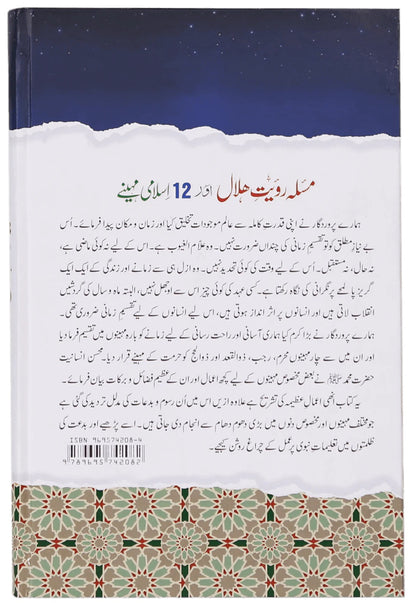 مسئلہ رویتِ ھلال اور 12 اسلامی مہینے
ہمارے پروردگار نے اپنی قدرت کاملہ سے عالم موجودات تخلیق کیا اور زمان و مکان پیدا فرمائے۔ اُس
بے نیاز مطلق کو تو تقسیم زمانی کی چنداں ضرورت نہیں۔ وہ علّام الغیوب ہے۔ اس کے لیے نہ کوئی ماضی ہے،
نہ حال، نہ مستقبل۔ اُس کے لیے وقت کی کوئی تحدید نہیں۔ وہ ازل ہی سے زمانے اور زندگی کے ایک ایک
گریز پا لمحے پر نگرانی کی نگاہ رکھتا ہے۔ کسی عہد کی کوئی چیز اس سے اوجھل نہیں، البتہ ماہ و سال کی گردشیں
انقلاب لاتی ہیں اور انسانوں پر اثر انداز ہوتی ہیں، اس لیے انسانوں کے لیے تقسیم زمانی ضروری تھی۔
ہمارے پروردگار نے بڑا کرم کیا ہماری آسانی اور راحت رسانی کے لیے زمانے کو بارہ مہینوں میں تقسیم فرما دیا
اور ان میں سے چار مہینوں محرم، رجب، ذوالقعد اور ذوالحج کو حرمت کے مہینے قرار دیا۔ محسن انسانیت
حضرت محمد ﷺ نے بعض مخصوص مہینوں کے لیے کچھ اعمال اور ان کے عظیم فضائل و برکات بیان فرمائے۔
یہ کتاب انھی اعمال عظیمہ کی تشریح ہے علاوہ ازیں اس میں اُن رسوم و بدعات کی مدلل تردید کی گئی ہے
جو مختلف مہینوں اور مخصوص دنوں میں بڑی دھوم دھام سے انجام دی جاتی ہیں۔ اسے پڑھیے اور بدعت کی
ظلمتوں میں تعلیماتِ نبوی پر عمل کے چراغ روشن کیجیے۔
ISBN 969574208-4
9 789695 742082